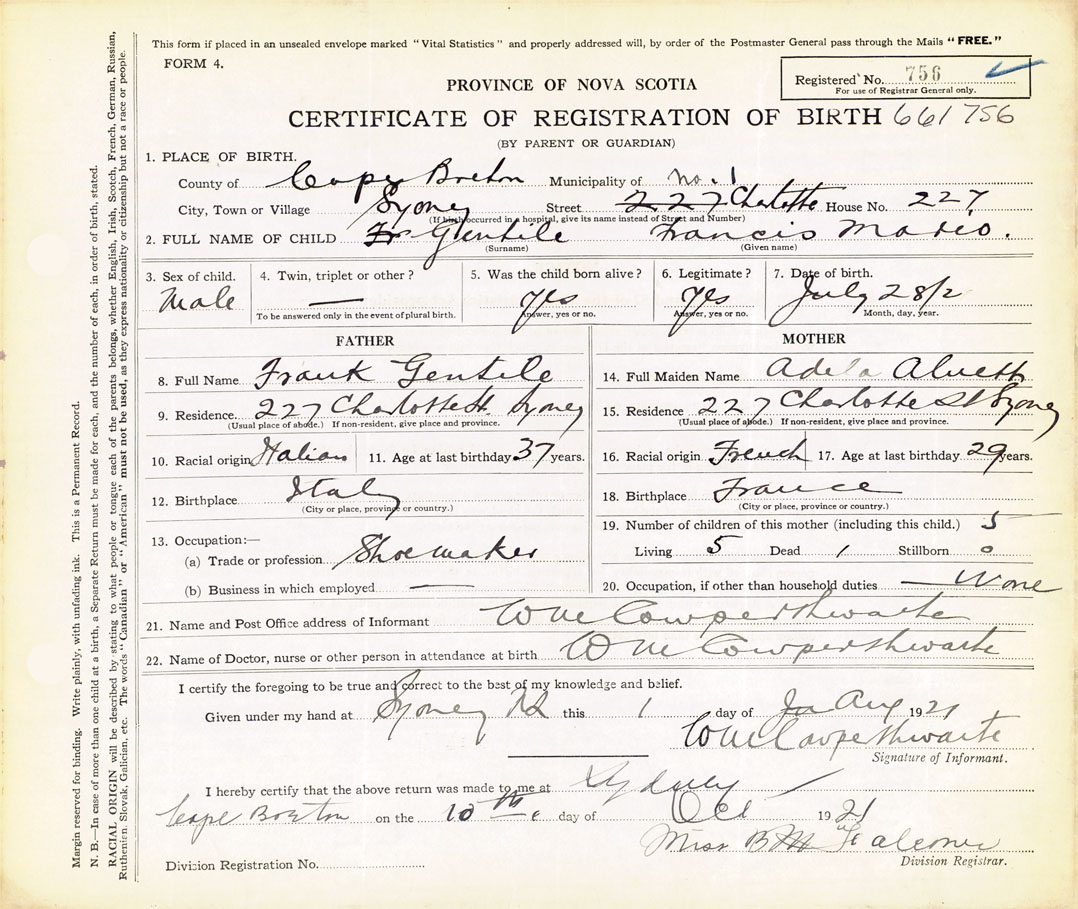 This form if placed in an unsealed envelope marked "Vital Statistics" and properly addressed will, by order of the Postmaster General pass through the Mails "FREE."
FORM 4.
Registered No. 756
For use of Registrar General only.
PROVINCE OF NOVA SCOTIA
CERTIFICATE OF REGISTRATION OF BIRTH 661756
(BY PARENT OR GUARDIAN)
1. PLACE OF BIRTH.
County of Cape Breton Municipality of No. 1
City, Town or Village Sydney Street 227 Charlotte House No. 227
(If birth occurred in a hospital, give its name instead of Street and Number)
2. FULL NAME OF CHILD Fr Gentile Francis Mario.
(Surname) (Given name)
3. Sex of child. 4. Twin, triplet or other? 5. Was the child born alive? 6. Legitimate? 7. Date of birth.
Male — Yes Yes July 28/21
To be answered only in the event of plural birth. Answer, yes or no. Answer, yes or no. Month, day, year.
FATHER
8. Full Name Frank Gentile
9. Residence 227 Charlotte St. Sydney
(Usual place of abode.) If non-resident, give place and province.
10. Racial origin Italian 11. Age at last birthday 37 years.
12. Birthplace Italy
(City or place, province or country.)
13. Occupation:—
(a) Trade or profession Shoemaker
(b) Business in which employed —
MOTHER
14. Full Maiden Name Adela
15. Residence 227 Charlotte St Sydney
(Usual place of abode.) If non-resident, give place and province.
16. Racial origin French 17. Age at last birthday 29 years.
18. Birthplace France
(City or place, province or country.)
19. Number of children of this mother (including this child.) 5
Living 5 Dead 1 Stillborn 0
20. Occupation, if other than household duties — None
21. Name and Post Office address of Informant Wm Cowperthwaite
22. Name of Doctor, nurse or other person in attendance at birth Wm Cowperthwaite
I certify the foregoing to be true and correct to the best of my knowledge and belief.
Given under my hand at Sydney this 1 day of Aug 1921
Wm Cowperthwaite
Signature of Informant.
I hereby certify that the above return was made to me at Sydney
Cape Breton on the 10th day of Oct 1921
Miss B Falconer
Division Registration No. Division Registrar.
Margin reserved for binding. Write plainly, with unfading ink. This is a Permanent Record.
N. B.—In case of more than one child at a birth, a Separate Return must be made for each, and the number of each, in order of birth, stated.
RACIAL ORIGIN will be described by stating to what people or tongue each of the parents belongs, whether English, Irish, Scotch, French, German, Russian,
Ruthenian, Slovak, Galician, etc. The words "Canadian" or "American" must not be used, as they express nationality or citizenship but not a race or people.